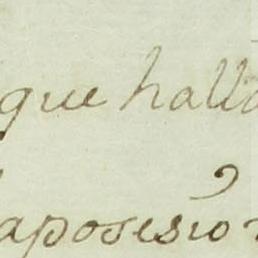 que halla
aposesion